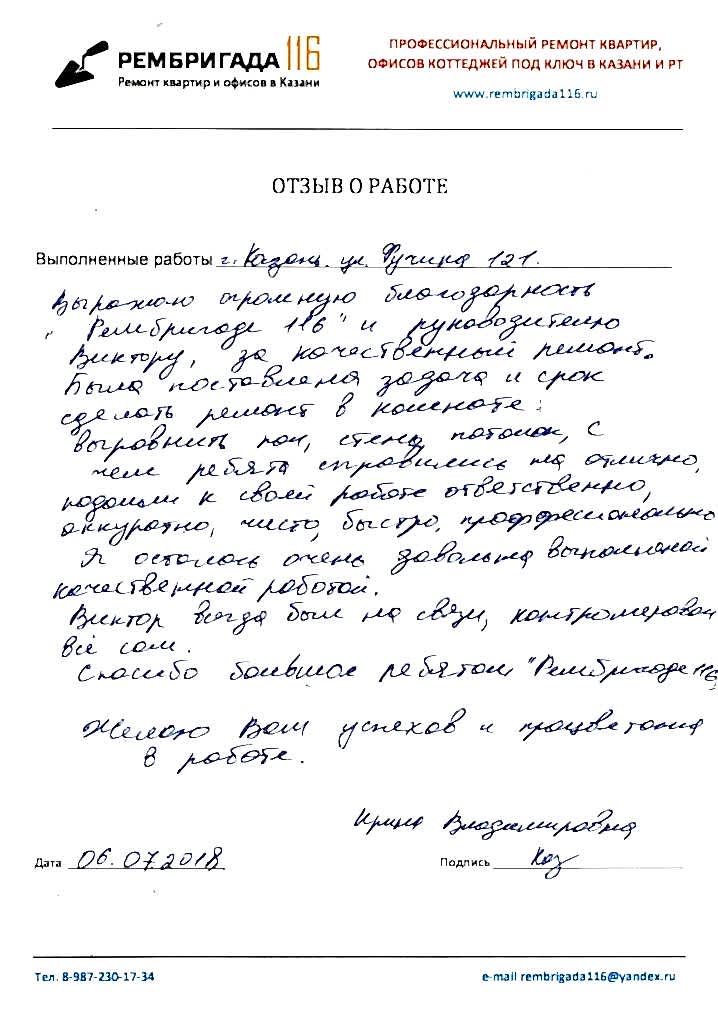 РЕМБРИГАДА 116
Ремонт квартир и офисов в Казани
ПРОФЕССИОНАЛЬНЫЙ РЕМОНТ КВАРТИР,
ОФИСОВ КОТТЕДЖЕЙ ПОД КЛЮЧ В КАЗАНИ И РТ
www.rembrigada116.ru
ОТЗЫВ О РАБОТЕ
Выполненные работы г. Казань. ул. Фучика 121.
Выражаю огромную благодарность
"Рембригаде 116" и руководителю
Виктору, за качественный ремонт.
Была поставлена задача и срок
сделать ремонт в комнате:
выровнить пол, стены, потолок, с
чем ребята справились на отлично,
подошли к своей работе ответственно,
аккуратно, чисто, быстро, профессионально
Я осталась очень завольна выполненой
качественной работой.
Виктор всегда был на связи, контролеровал
всё сам.
Спасибо большое ребятам "Рембригаде 116"
Желаю Вам успехов и процветания
в работе.
Ирина Владимировна
Дата 06.07.2018
Подпись
Тел. 8-987-230-17-34
e-mail rembrigada116@yandex.ru